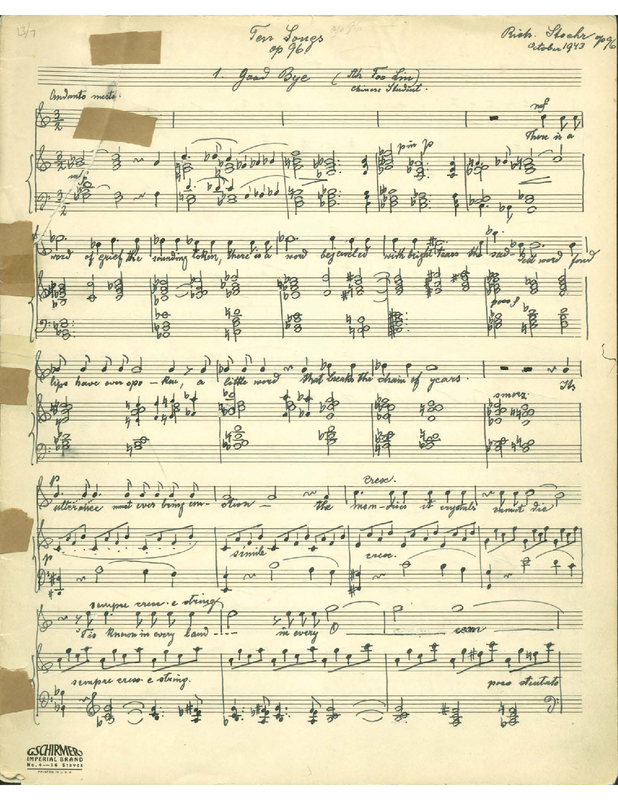 13/7
Ten Songs
op 96
Rich. Stoehr op 96
October 1943
1. Good Bye (Ah Too Lin)
Chinese Student.
Andante mesto.
mf
There is a
mf
più p
word of grief the sounding token, there is a word bejeweled with bright tears the saddest word fond
poco f
lips have ever spo-ken, a little word that breaks the chain of years. Its
smorz.
p cresc.
utterance must ever bring emo-tion - the mem-ories it crystals cannot die
p simile cresc.
sempre cresc. e string.
'Tis known in every land in every
sempre cresc. e string. poco stentato
G. SCHIRMER
IMPERIAL BRAND
No. 4 - 16 Staves
PRINTED IN U.S.A.